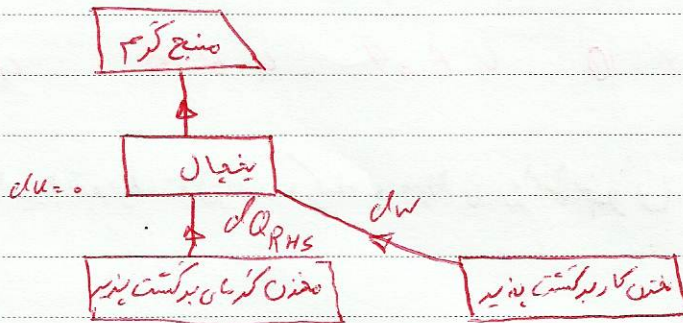 منبع گرم
یخچال
du=0
dQRHS
dw
مخزن گرمای برگشت پذیر
مخزن کار برگشت پذیر